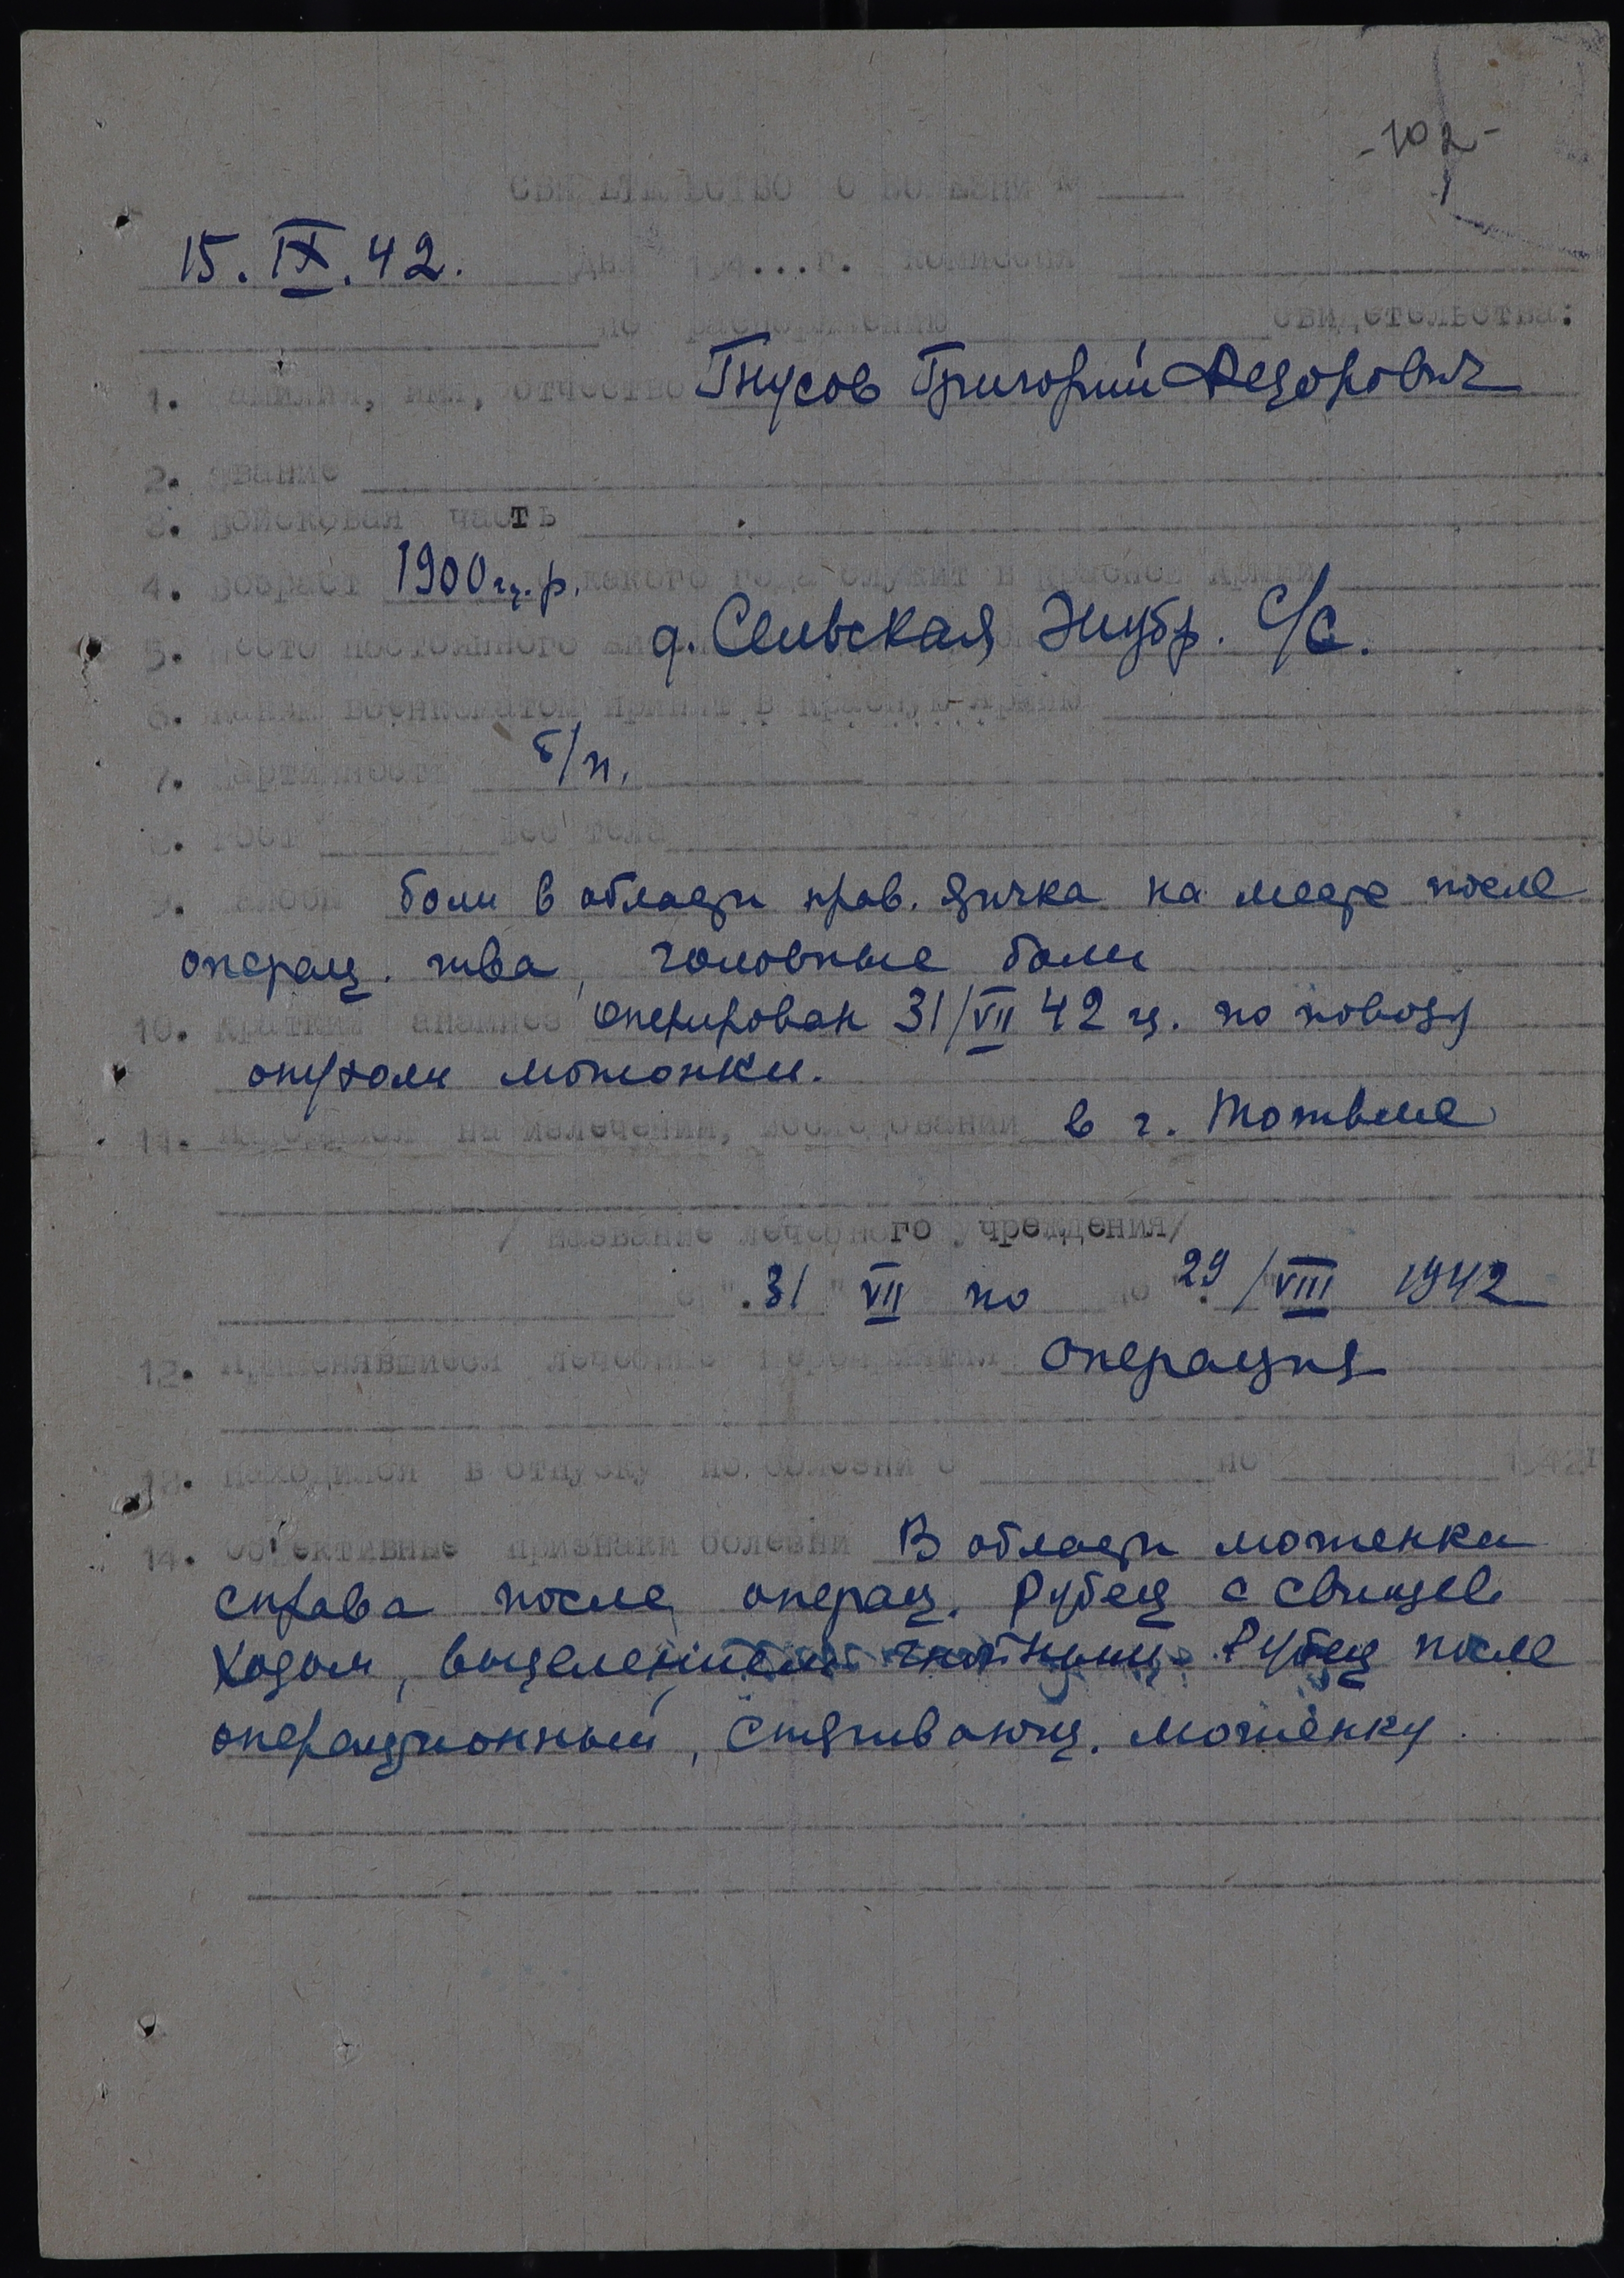 -102-
свидетельство о болезни №
15.IX.42. дня 194...г. комиссия
по распоряжению свидетельства:
1. Фамилия, имя, отчество Гнусов Григорий Федорович
2. Звание
3. Войсковая часть
4. Возраст 1900 г.р. с какого года служит в Красной Армии
5. Место постоянного д. Сельская с/с.
6. Каким военкоматом принят в Красную Армию
7. Партийность б/п.
8. Рост вес тела
9. Жалобы боли в области прав. яичка на месте после
операц. шва, головные боли
10. Краткий анамнез Оперирован 31/VII 42 г. по поводу
опухоли мошонки.
11. Находился на излечении, исследовании в г. Тотьме
/ название лечебного учреждения/
с ". 31 " VII по по "29 /VIII 1942
12. Применявшиеся лечебные мероприятия Операция
13. Находился в отпуску по болезни с по 1942г
14. Объективные признаки болезни В области мошенки
справа после операц. рубец с свищев
ходом, выделением Рубец после
операционный, стягивающ. мошенку.